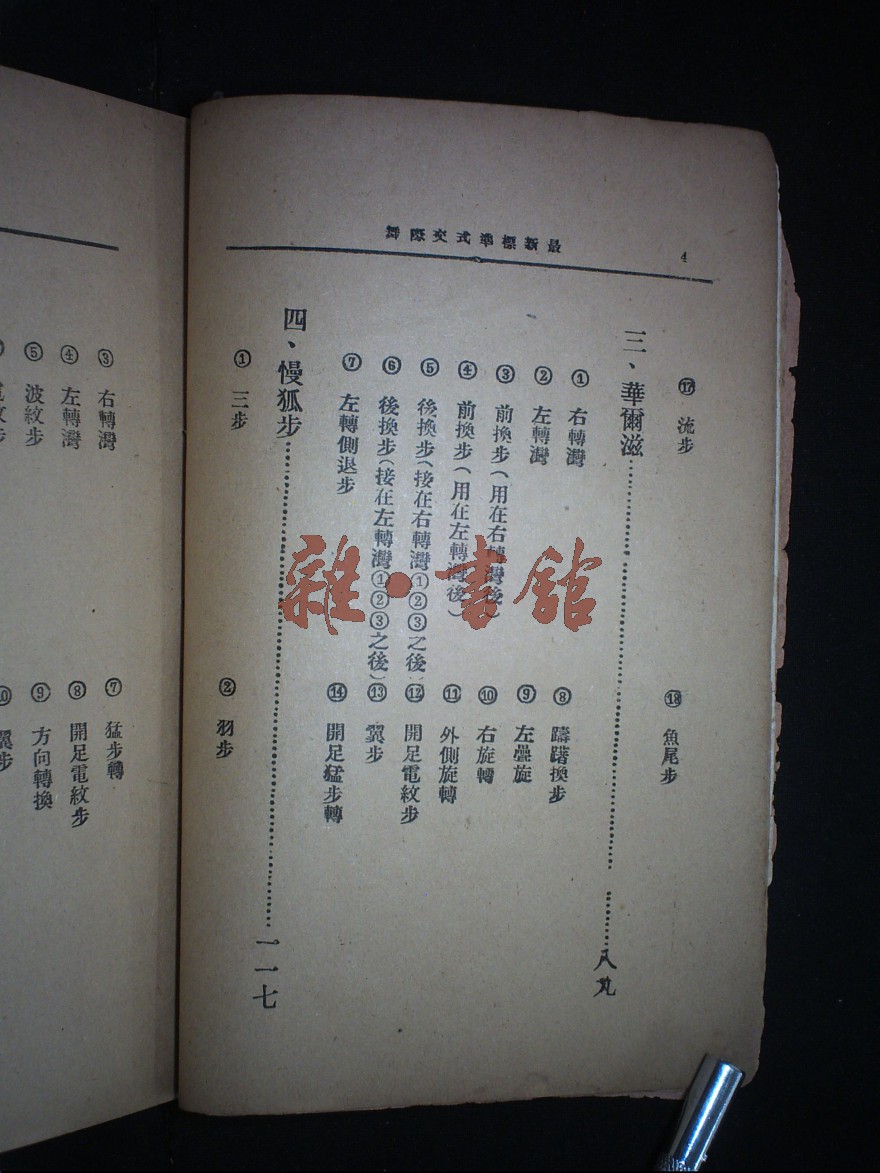 最新標準式交際舞
4
⑰ 流步
⑱ 魚尾步
三、華爾滋……八九
① 右轉灣
② 左轉灣
③ 前換步(用在右轉灣後)
④ 前換步(用在左轉灣後)
⑤ 後換步(接在右轉灣①②③之後)
⑥ 後換步(接在左轉灣①②③之後)
⑦ 左轉側退步
⑧ 躊躇換步
⑨ 左疊旋
⑩ 右旋轉
⑪ 外側旋轉
⑫ 開足電紋步
⑬ 翼步
⑭ 開足猛步轉
四、慢狐步……一一七
① 三步
② 羽步
③ 右轉灣
④ 左轉灣
⑤ 波紋步
⑦ 猛步轉
⑧ 開足電紋步
⑨ 方向轉換
⑩ 翼步
雜·書館